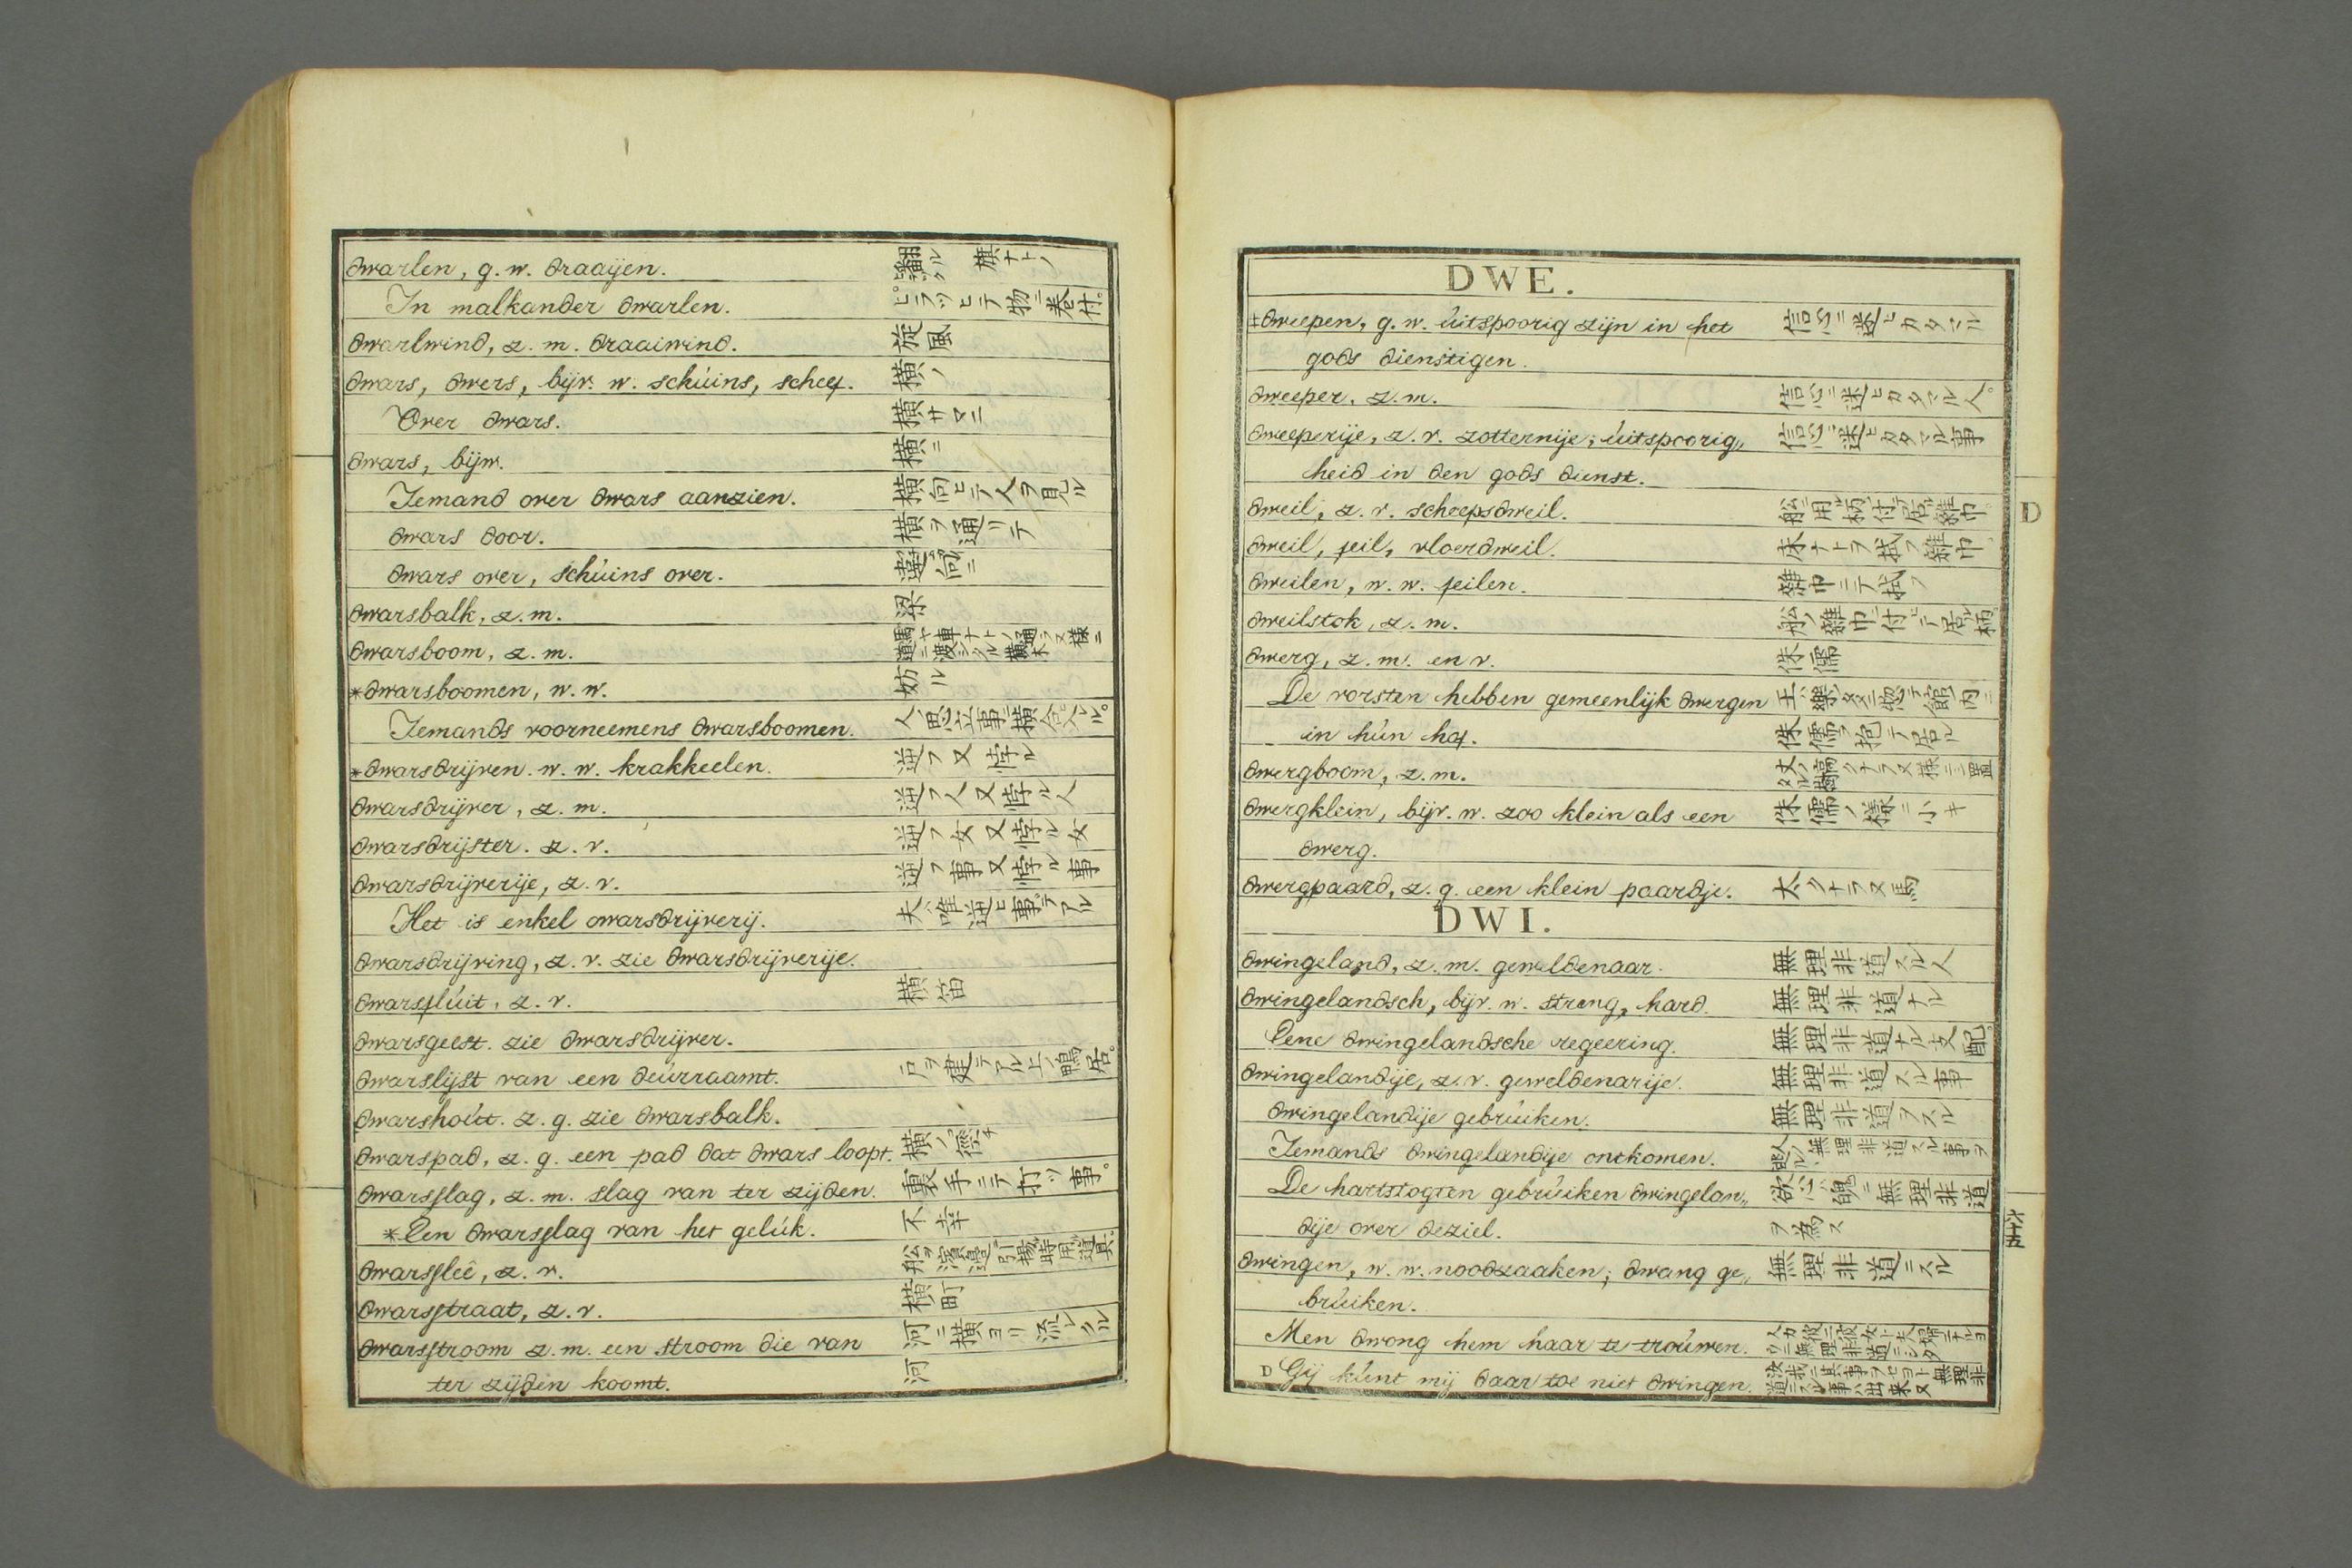 dwarlen, g. w. draaijen. 翻ル 旗ナトノ
In malkander dwarlen. ヒラツヒテ物ニ巻付。
dwarlwind, z. m. draaiwind. 旋風
dwars, dwers, bijv. w. schúins, scheef. 横ノ
Over dwars. 横サマニ
dwars, bijw. 横ニ
Iemand over dwars aanzien. 横向ヒテ人ヲ見ル
dwars door. 横ヲ通リテ
dwars over, schúins over.
dwarsbalk, z. m. 梁
dwarsboom, z. m.
*dwarsboomen, w. w. 妨ル
Iemands voorneemens dwarsboomen.
*dwarsdrijven. w. w. krakkeelen. 逆フ又悖ル
dwarsdrijver, z. m. 逆フ人又悖ル人
dwarsdrijster. z. v. 逆フ女又悖ル女
dwarsdrijverije, z. v. 逆フ事又悖ル事
Het is enkel dwarsdrijverij. 夫ハ唯逆ヒ事テアル
dwarsdrijving, z. v. zie dwarsdrijverije.
dwarsflúit, z. v. 横笛
dwarsgeest. zie dwarsdrijver.
dwarslijst van een deúrraamt. 戸ヲ建テアル上ノ鴨居。
dwarshoút. z. g. zie dwarsbalk.
dwarspad, z. g. een pad dat dwars loopt. 横ノ徑
dwarsslag, z. m. slag van ter zijden. 裏手ニテ打ツ事。
*Een dwarsslag van het gelúk. 不幸
dwarsslee, z. v.
dwarsstraat, z. v. 横町
dwarsstroom z. m. een stroom die van 河ニ横ヨリ流レクル
ter zijden koomt. 河
DWE.
‡dweepen, g. w. úitspoorig zijn in het 信心ニ迷ヒカタマル
gods dienstigen.
dweeper, z. m. 信心ニ迷ヒカタマル人。
dweeperije, z. v. zotternije; úitspoorig„ 信心ニ迷ヒカタマル事
heid in den gods dienst.
dweil, z. v. scheepsdweil.
D
dweil, feil, vloerdweil. 床ナトヲ拭フ雜巾
dweilen, w. w. feilen. 雜巾ニテ拭フ
dweilstok, z. m.
dwerg, z. m. en v. 侏儒
De vorsten hebben gemeenlijk dwergen
in hún hof. 侏儒ヲ抱テ居ル
dwergboom, z. m.
dwergklein, bijv. w. zoo klein als een 侏儒ノ様ニ小キ
dwerg.
dwergpaard, z. g. een klein paardje. 大クナラヌ馬
DWI.
dwingeland, z. m. geweldenaar. 無理非道スル人
dwingelandsch, bijv. w. streng, hard. 無理非道ナル
Eene dwingelandsche regeering. 無理非道ナル支配。
dwingelandije, z. v. geweldenarije. 無理非道スル事
dwingelandije gebrúiken. 無理非道ヲスル
Iemands dwingelandije ontkomen.
De hartstogten gebrúiken dwingelan„ 欲心ハ魂ニ無理非道
dije over deziel. ヲ為ス
dwingen, w. w. noodzaaken; dwang ge„ 無理非道ニスル
brúiken.
Men dwong hem haar te troúwen.
D Gij kúnt mij daar toe niet dwingen.